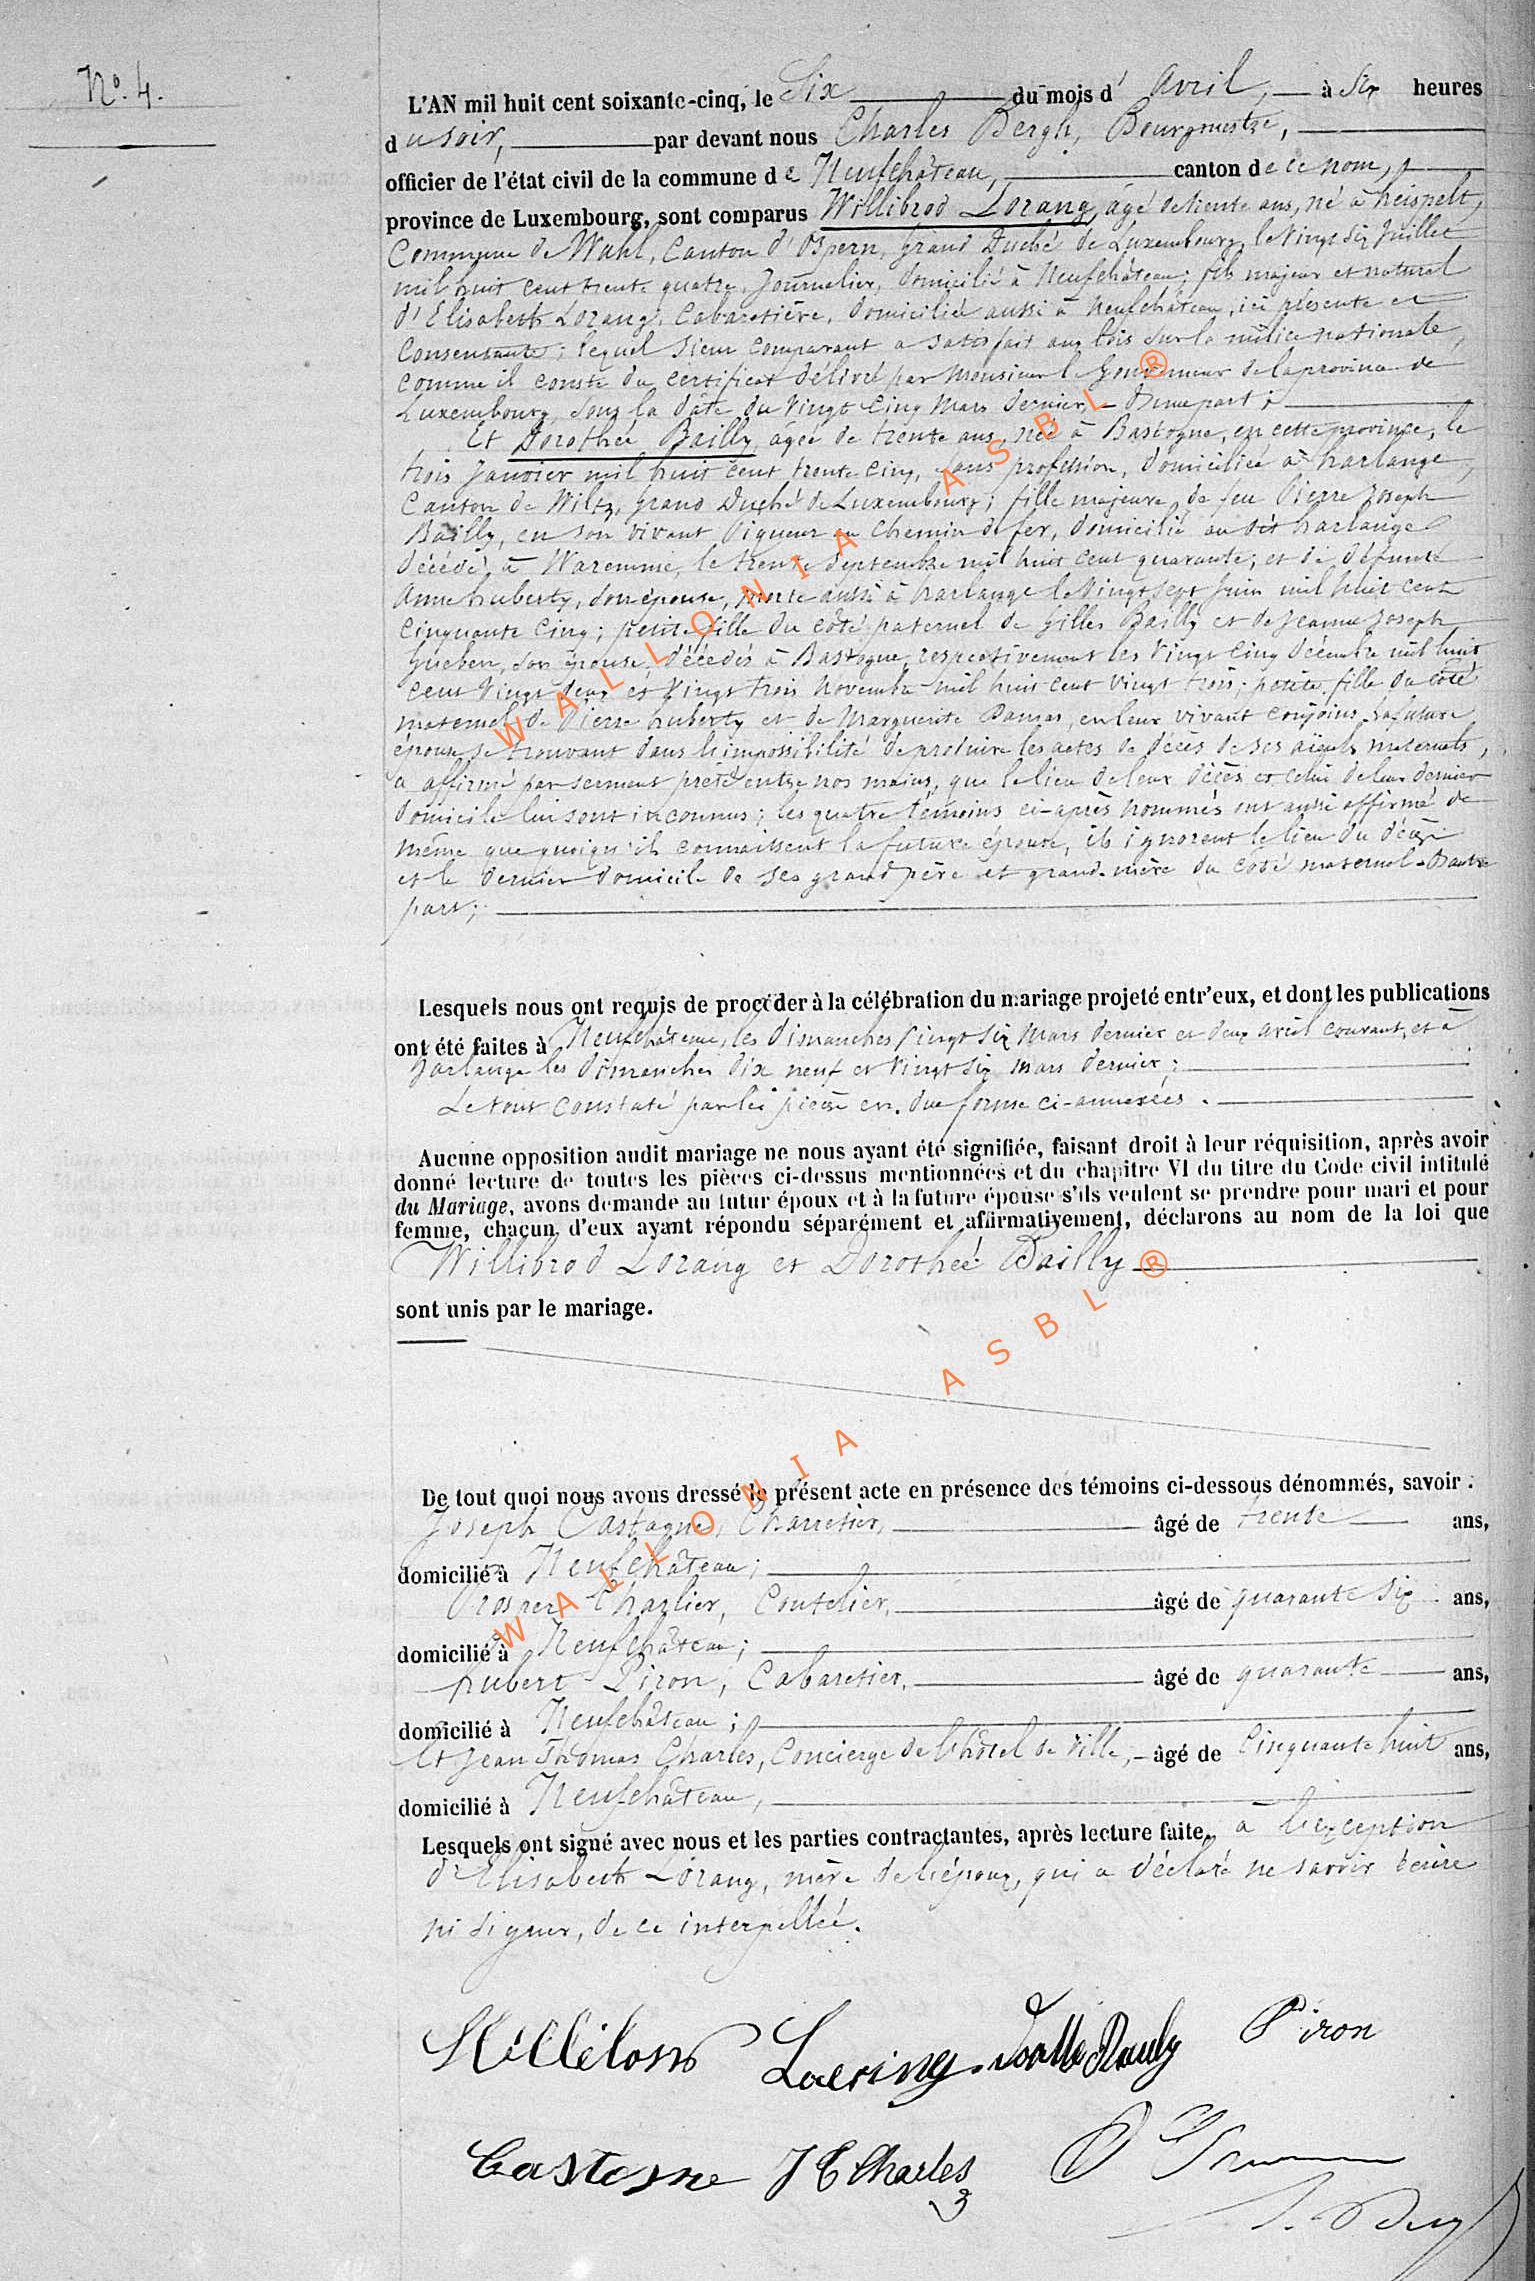 N.° 4.
L'AN mil huit cent soixante-cinq, le Six du mois d' avril, à Six heures
du soir, par devant nous Charles Bergh, Bourgmestre,
officier de l'état civil de la commune de Neufchâteau, canton de ce nom,
province de Luxembourg, sont comparus Willibrod Lorang, âgé de trente ans, né à heispelt,
Commune de Wahl, Canton d'Ospern, Grand Duché de Luxembourg, le Vingt Six Juillet
mil huit cent trente quatre, Journalier, domicilié à Neufchâteau; fils majeur et naturel
d'Elisabeth Lorang, Cabaretière, domiciliée aussi à Neufchâteau, ici présente et
Consentante; lequel Sieur Comparant a satisfait aux lois sur la milice nationale,
comme il conste du certificat délivré par Monsieur le Gouverneur de la province de
Luxembourg, sous la date du Vingt Cinq Mars dernier, - D'une part;
Et Dorothée Bailly, âgée de trente ans, née à Bastogne, en cette province, le
trois Janvier mil huit cent trente Cinq, sans profession, domiciliée à harlange,
Canton de Wiltz, Grand Duché de Luxembourg; fille majeure de feu Pierre Joseph
Bailly, en son vivant Piqueur au Chemin de fer, domicilié au dit harlange
décédé à Waremme, le trente Septembre mil huit cent quarante; et de défunte
Anne huberty, son épouse, morte aussi à harlange le Vingt Sept Juin mil huit cent
Cinquante Cinq; petite fille du côté paternel de Gilles Bailly et de Jeanne Joseph
Gueben, son épouse, décédés à Bastogne, respectivement les Vingt Cinq décembre mil huit
cent Vingt deux et Vingt trois novembre mil huit cent vingt trois; petite fille du côté
maternel de Pierre huberty et de Marguerite, en leur vivant conjoins. La future
épouse se trouvant dans l'impossibilité de produire les actes de décès de ses aïeuls maternels,
a affirmé par serment prêté entre nos mains, que le lieu de leur décès et celui de leur dernier
domicile lui sont inconnus; les quatre témoins ci-après nommés ont aussi affirmé de
même que quoiqu'ils connaissent la future épouse, ils ignorent le lieu du décès
et le dernier domicile de ses grand père et grand-mère du côté maternel - D'autre
part;
Lesquels nous ont requis de procéder à la célébration du mariage projeté entr'eux, et dont les publications
ont été faites à Neufchâteau, les dimanches Vingt Six Mars dernier et deux avril courant, et à
harlange les dimanches dix neuf et Vingt Six mars dernier;
Le tout constaté par les pièces en due forme ci-annexées.
Aucune opposition audit mariage ne nous ayant été signifiée, faisant droit à leur réquisition, après avoir
donné lecture de toutes les pièces ci-dessus mentionnées et du chapitre VI du titre du Code civil intitulé
du Mariage, avons demande au futur époux et à la future épouse s'ils veulent se prendre pour mari et pour
femme, chacun d'eux ayant répondu séparément et affirmativement, déclarons au nom de la loi que
Willibrod Lorang et Dorotheé Bailly
sont unis par le mariage.
De tout quoi nous avons dressé le présent acte en présence des témoins ci-dessous dénommés, savoir :
Joseph Castagne, Charretier, âgé de trente ans,
domicilié à Neufchâteau;
Prosper Charlier, Coutelier, âgé de quarante six ans,
domicilié à Neufchâteau;
hubert Piron, Cabaretier, âgé de quarante ans,
domicilié à Neufchâteau;
Et Jean Thomas Charles, Concierge de l'hôtel de Ville, - âgé de Cinquante huit ans,
domicilié à Neufchâteau,
Lesquels ont signé avec nous et les parties contractantes, après lecture faite, à l'exception
d'Elisabeth Lorang, mère de l'époux, qui a déclaré ne savoir écrire
ni signer, de ce interpellée.
Piron
Castagne J T Charles
WALLONIA ASBL ®
WALLONIA ASBL ®